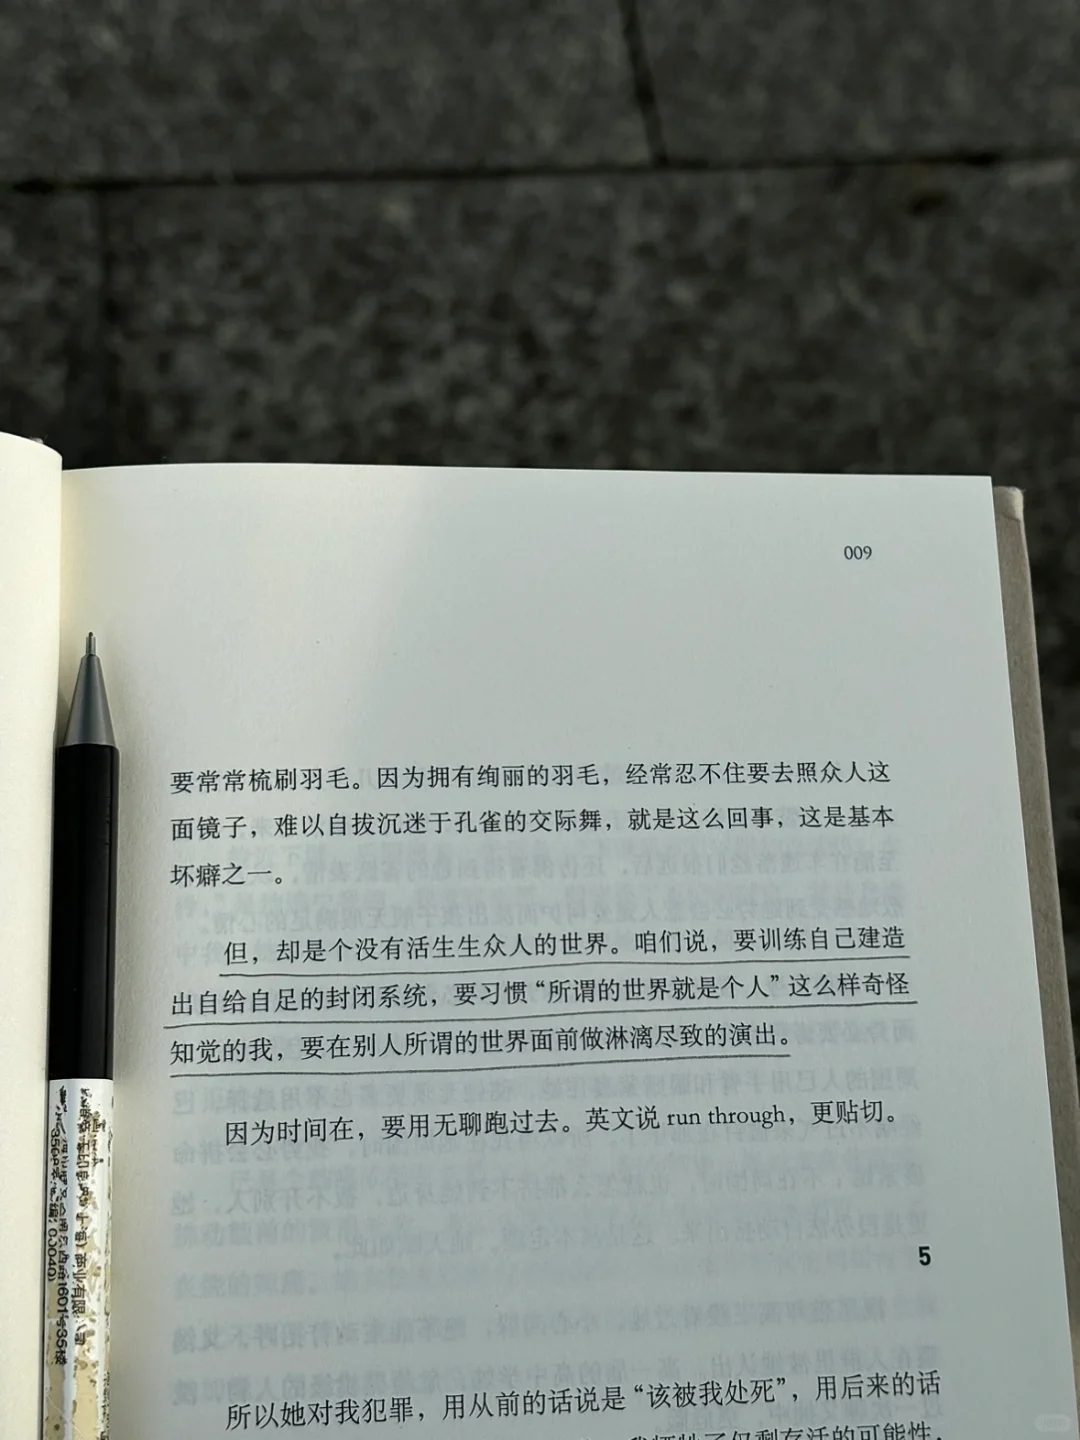 009
要常常梳刷羽毛。因为拥有绚丽的羽毛，经常忍不住要去照众人这
面镜子，难以自拔沉迷于孔雀的交际舞，就是这么回事，这是基本
坏癖之一。
但，却是个没有活生生众人的世界。咱们说，要训练自己建造
出自给自足的封闭系统，要习惯“所谓的世界就是个人”这么样奇怪
知觉的我，要在别人所谓的世界面前做淋漓尽致的演出。
因为时间在，要用无聊跑过去。英文说 run through，更贴切。
5
所以她对我犯罪，用从前的话说是“该被我处死”，用后来的话